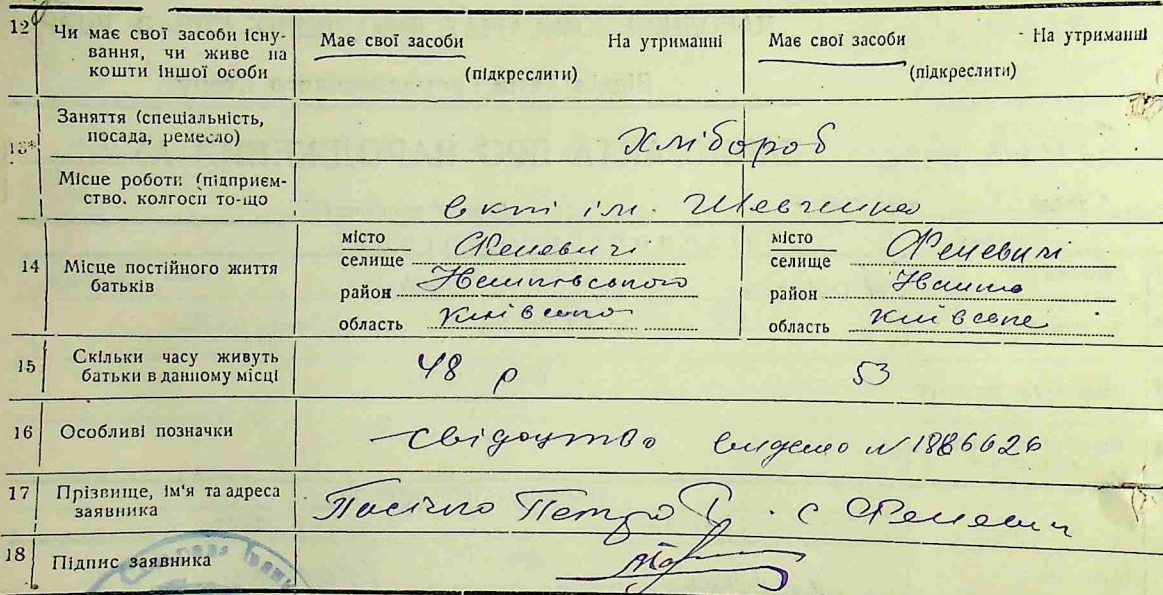 12 Чи має свої засоби існу-
вання, чи живе на
кошти іншої особи
Має свої засоби На утриманні Має свої засоби На утриманні
(підкреслити) (підкреслити)
Заняття (спеціальність,
посада, ремесло)
Хлібороб
Місце роботи (підприєм-
ство. колгосп то-що
в кпі ім. Шевченка
14 Місце постійного життя
батьків
місто
селище Феневичі
район
область
місто
селище Феневичі
район
область
15 Скільки часу живуть
батьки в данному місці
48 р 53
16 Особливі позначки
Свідоцтво видано N 1886626
17 Прізвище, ім'я та адреса
заявника
Петро с Феневич
18 Підпис заявника